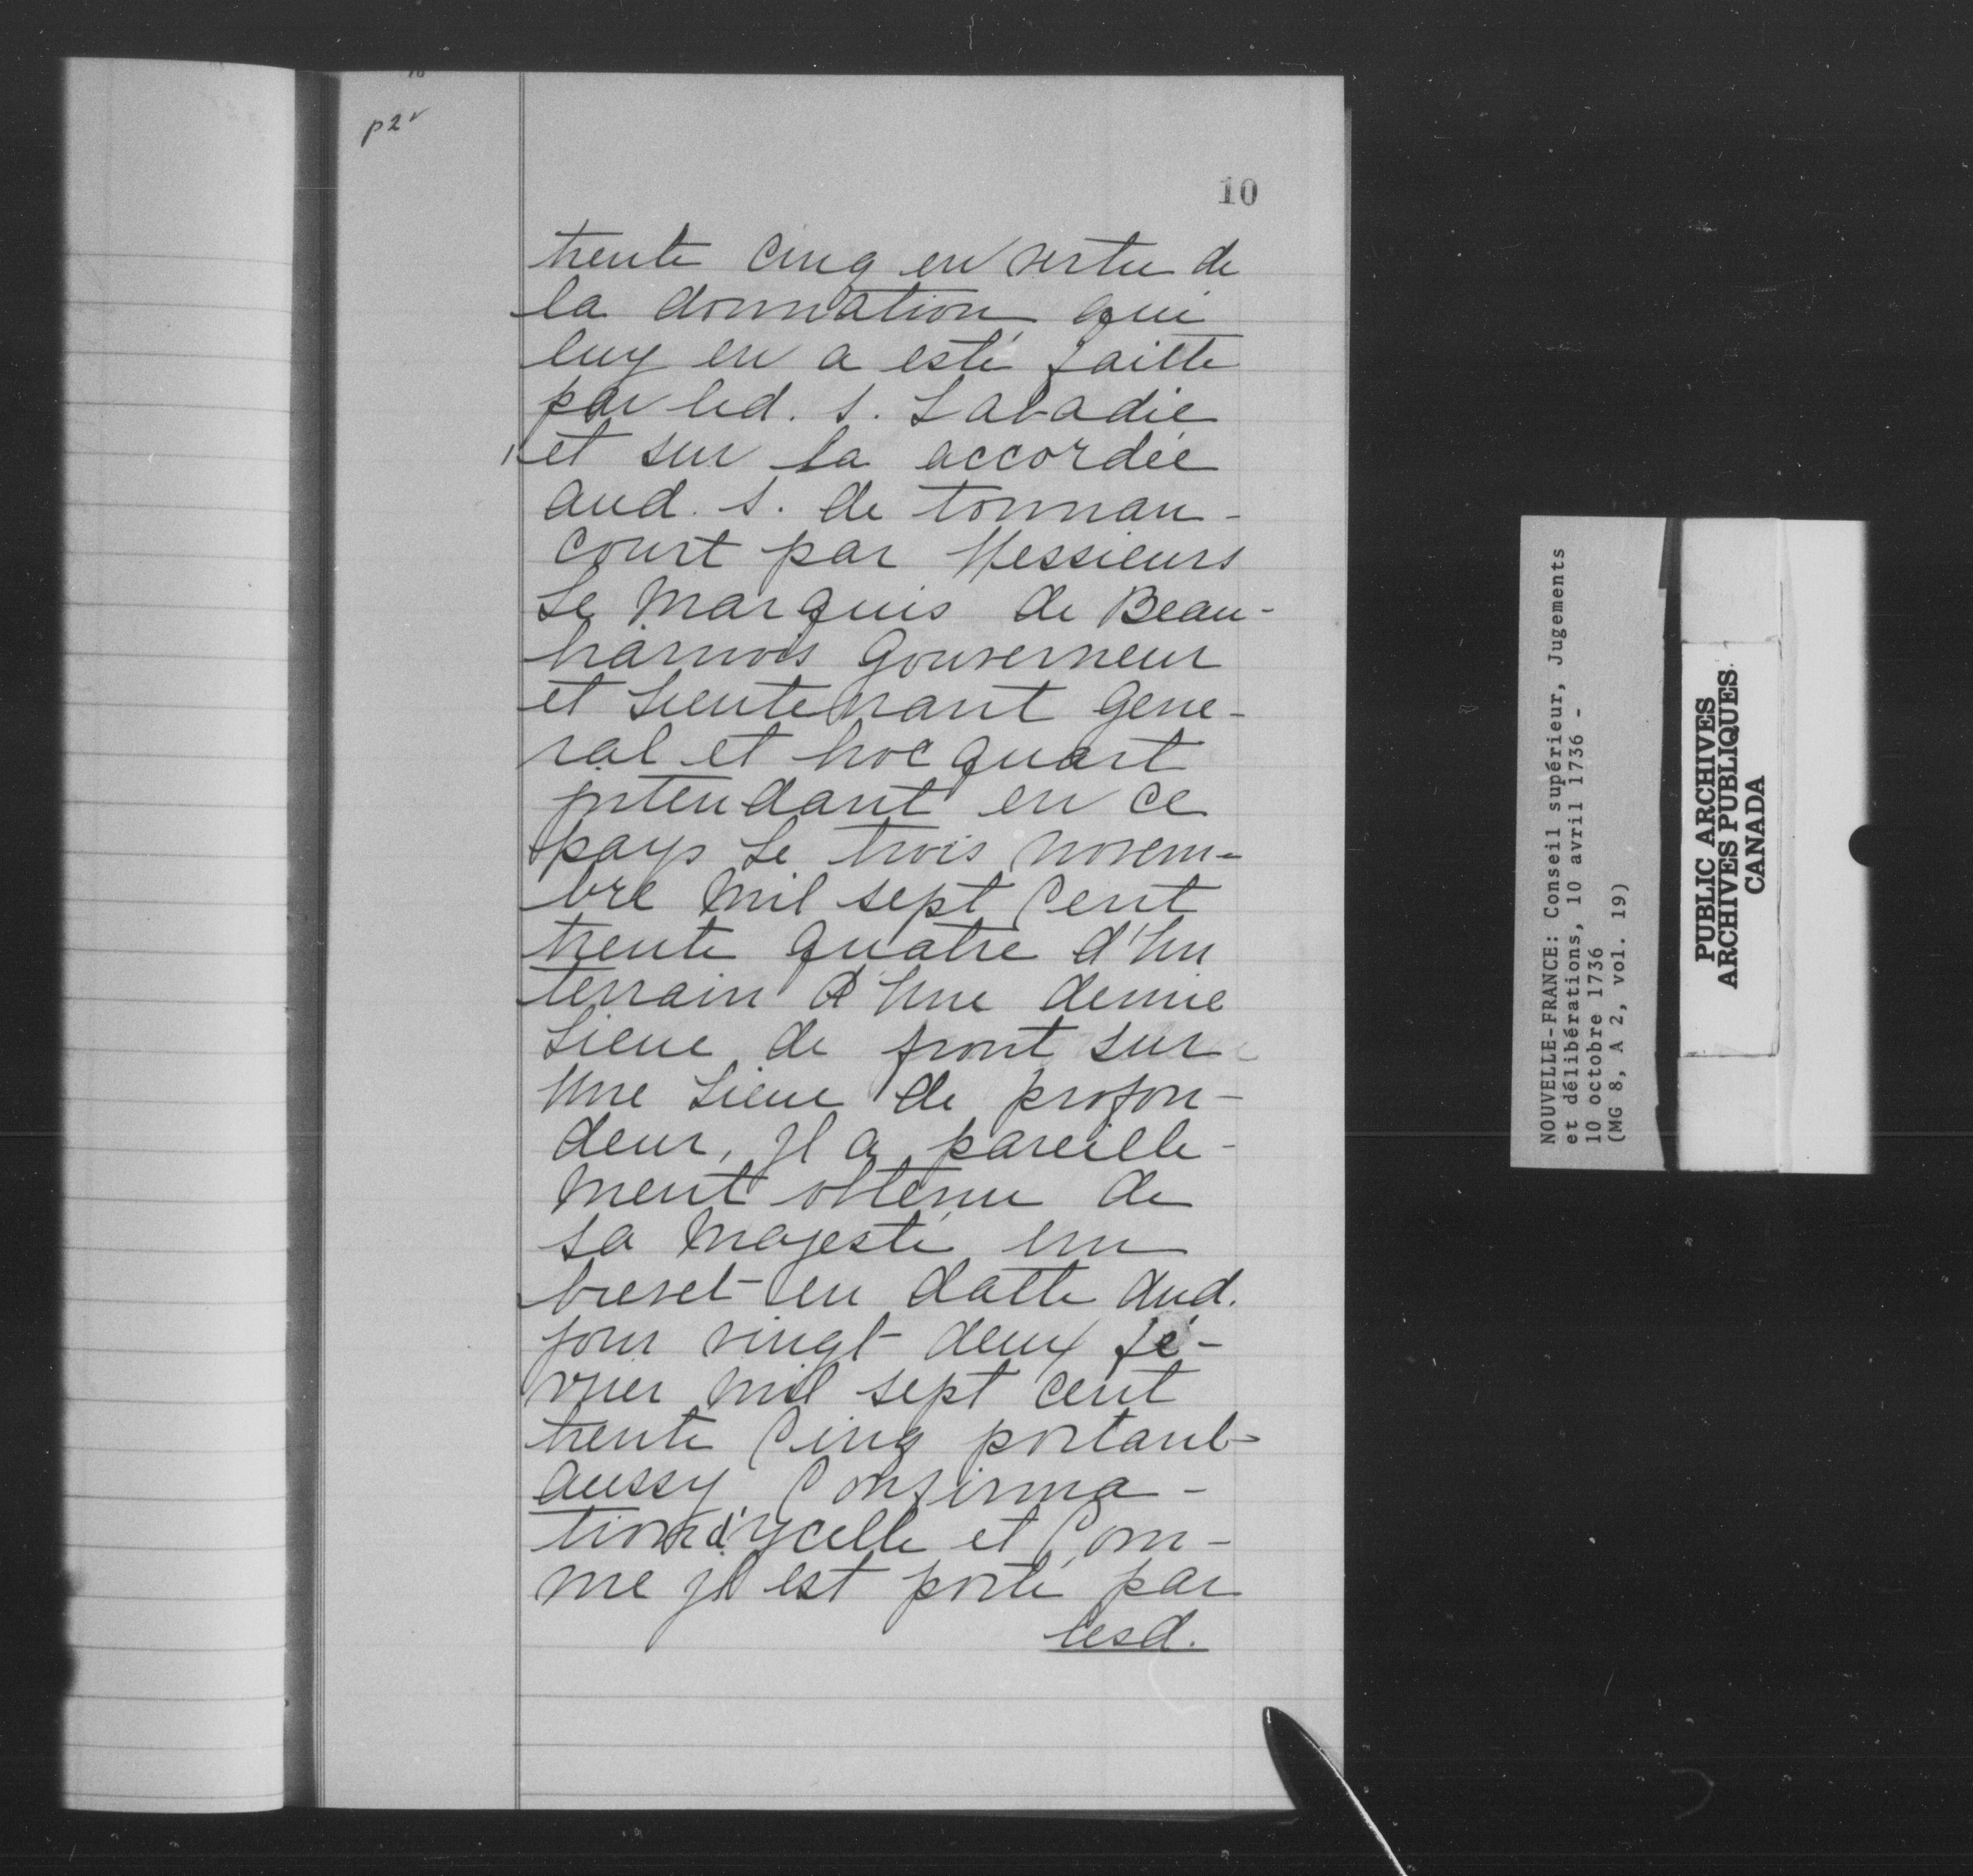 p2v
10
trente Cinq en vertu de
la donnation qui
luy en a esté faitte
par led. s. Labadie
et sur la accordée
aud. s. de tonnan-
court par Messieurs
Le Marquis de Beau-
harnois Gouverneur
et Lieutenant Gene-
ral et hocquart
jntendant en ce
pays Le trois novem-
bre mil sept Cent
trente quatre d'Un
terrain d'Une demie
Lieue de front sur
Une Lieue de profon-
deur, Jl a pareille-
ment obtenu de
sa Majesté un
brevet en datte dud.
jour vingt deux fé-
vrier mil sept cent
trente Cinq portant
aussy Confirma-
tion d'ycelle et Com-
me jl est porté par
lesd.
NOUVELLE-FRANCE: Conseil supérieur, Jugements
et délibérations, 10 avril 1736 -
10 octobre 1736
(MG 8, A 2, vol. 19)
PUBLIC ARCHIVES
ARCHIVES PUBLIQUES
CANADA